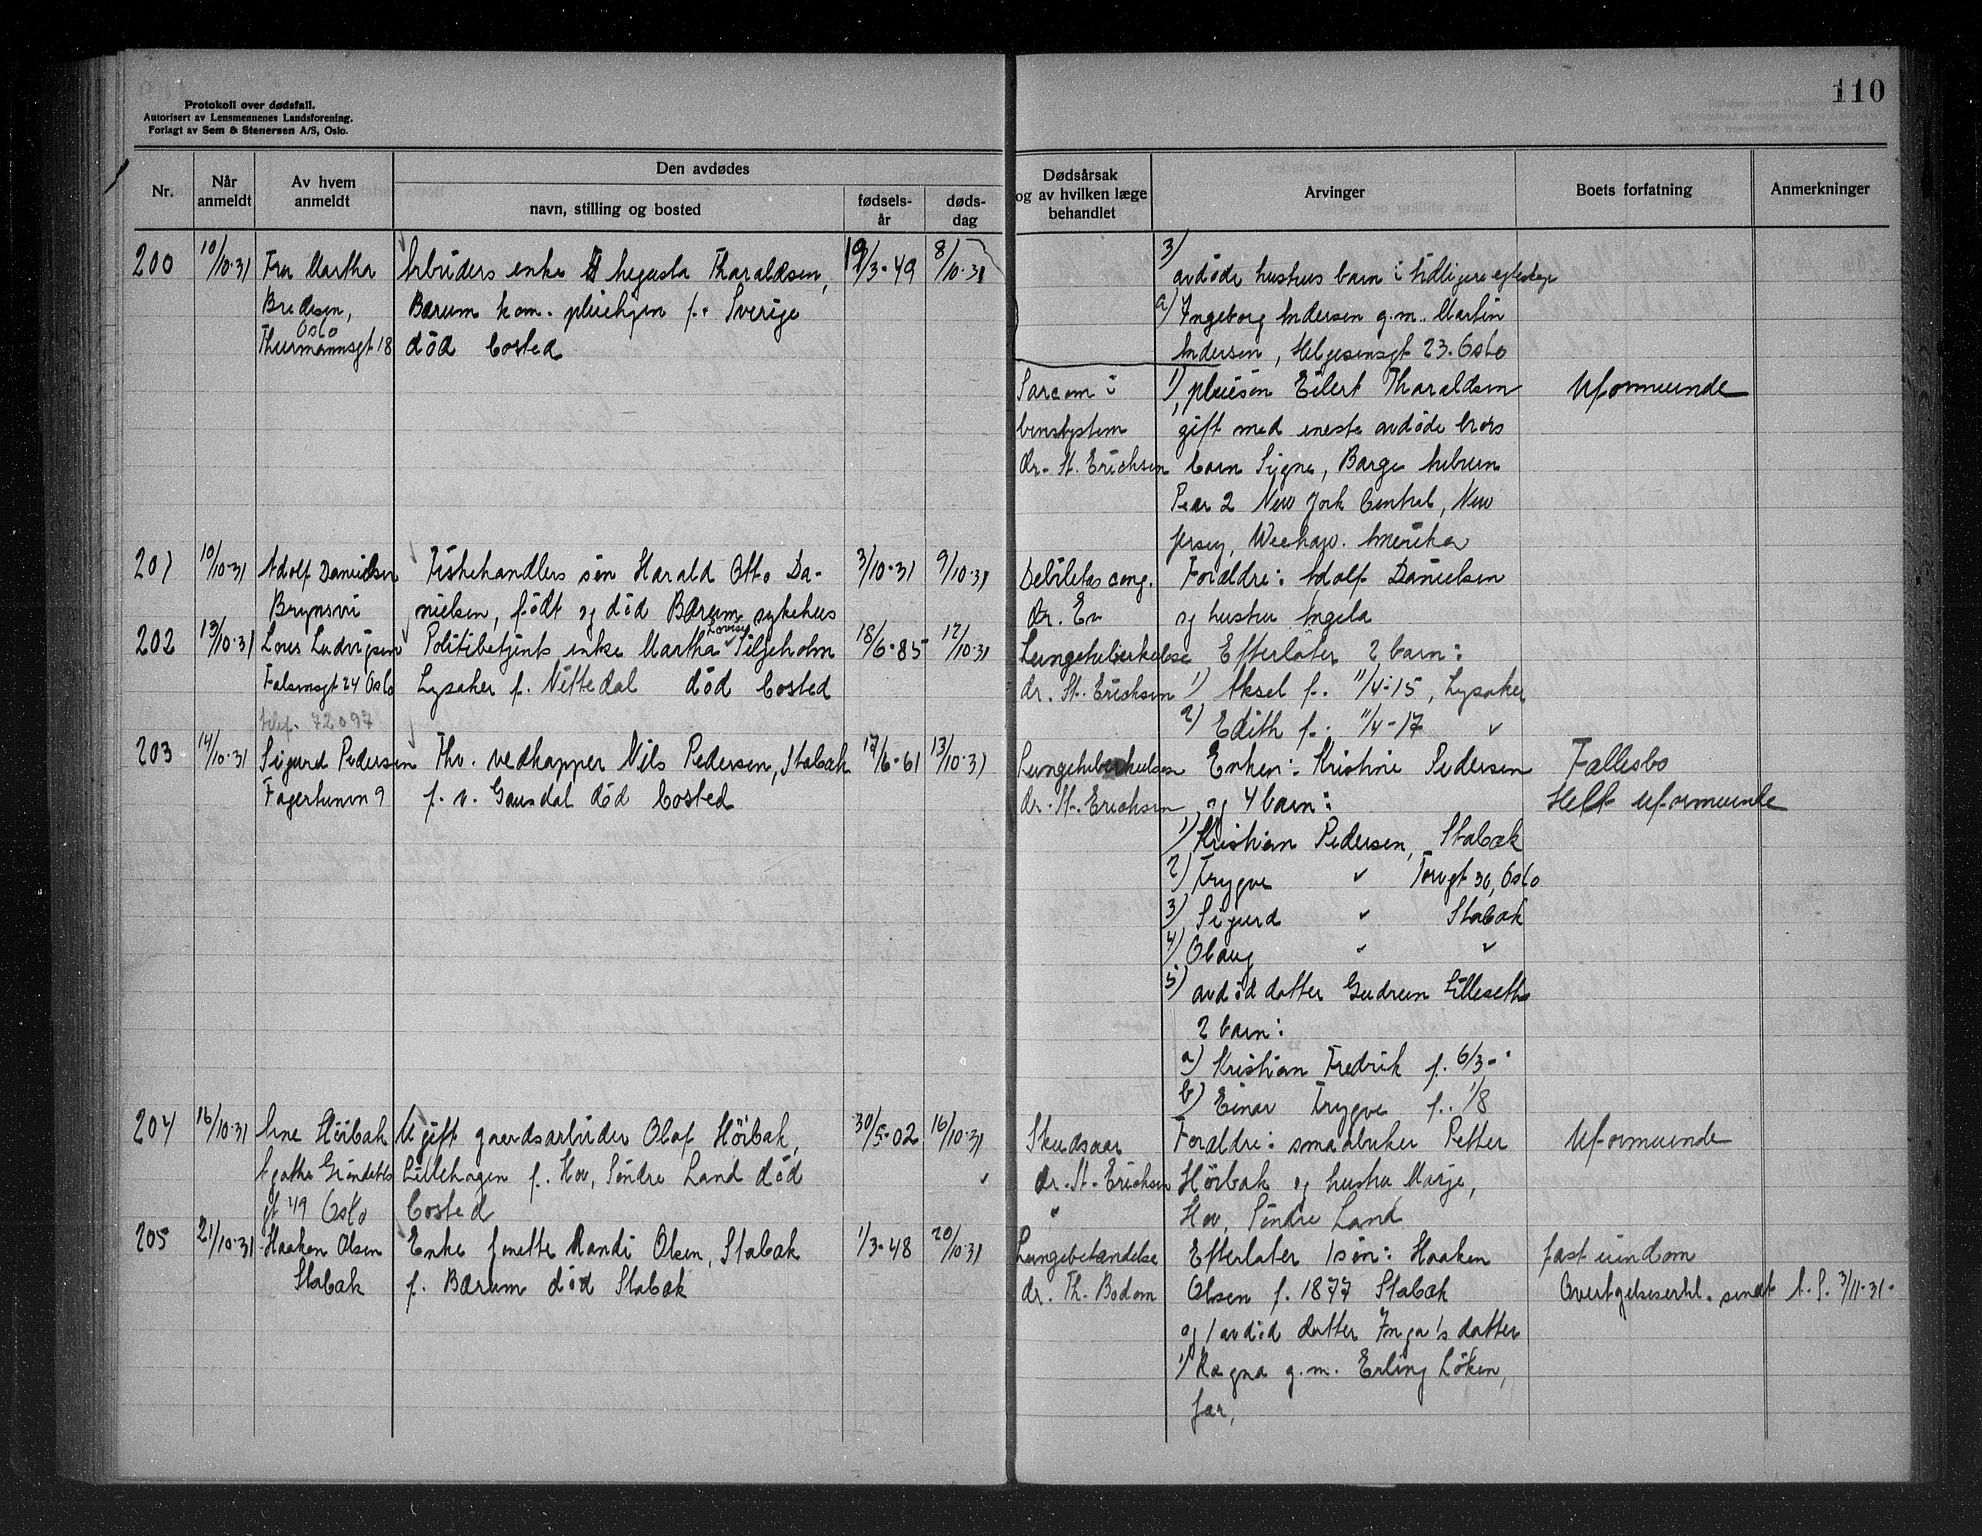 110
Protokoll over dødsfall.
Autorisert av Lensmennenes Landsforening.
Forlagt av Sem & Stenersen A/S, Oslo.
Nr.
Når anmeldt
Av hvem anmeldt
Den avdødes
navn, stilling og bosted
fødsels-år
døds-dag
Dødsårsak og av hvilken læge behandlet
Arvinger
Boets forfatning
Anmerkninger
200 10/10-31 Fru Martha Arbeiders enke Augusta Tharaldsen, 19/3-49 8/10-31
Bredesen, Bærum kom. pleiehjem f. Sverige
Oslo
Thurmannsgt 18 død bosted
3)
avdøde hushus barn i tidligere egteskap
a) Ingeborg Andersen g.m. Martin
Andersen, Helgesensgt 23. Oslo
Sarcom i 1) pleiesøn Eilert Tharaldsen Uformuende
bensystem gift med eneste avdøde brors
dr. St. Erichsen barn Signe, Barge
2 New York Central, New
Jersey, Weehaw. Amerika
201 10/10-31 Adolf Danielsen Fiskehandlers søn Harald Otto Da- 3/10-31 9/10-31 Debilitas cong. Foraldre: Adolf Danielsen
Brynsvi nielsen, født og død Bærum sykehus dr. En og hustru Angela
202 13/10-31 Lars Ludvigsen Politibetjents enke Martha Lovise Liljeholm 18/6-85 12/10-31 Lungetuberkulose Efterlater 2 barn:
Falsensgt 24 Oslo Lysaker f. Nittedal død bosted dr. St. Erichsen 1) Aksel f. 11/4-15, Lysaker
telef. 72097 2) Edith f. 11/4-17 "
203 14/10-31 Sigurd Pedersen Fhv. vedkapper Nils Pedersen, Stabæk 17/6-61 13/10-31 Lungetuberkulose Enken: Kristine Pedersen Fællesbo
Fagertunvn 9 f. v. Gausdal død bosted dr. St. Erichsen og 4 barn: Helt uformuende
1) Kristian Pedersen, Stabæk
2) Trygve " Torvgt 30, Oslo
3) Sigurd " Stabæk
4) Olaug " "
5) avdød datter Gudrun Lilleseths
2 barn:
a) Kristian Fredrik f. 6/3-
b) Einar Trygve f. 1/8
204 16/10-31 Arne Höibak Ugift gaardsarbeider Olaf Höibak, 30/5-02 16/10-31 Skudsaar Foraldre: smaabruker Petter Uformuende
Agathe Gröndahls Lillehagen f. Hov, Söndre Land död " dr. St. Erichsen Höibak og hustru Marje,
gt 49 Oslo bosted " Hov, Söndre Land
205 21/10-31 Haaken Olsen Enke Anette Randi Olsen, Stabæk 1/3-48 20/10-31 Lungebetændelse Efterlater 1 søn: Haaken fast eiendom
Stabæk f. Bærum død Stabæk dr. Th. Bodom Olsen f. 1877 Stabæk Overtgelseserkl. sendt A. S. 3/11-31.
og 1 avdød datter Inga's datter
1) Ragna g.m. Erling Löken,
Jar,